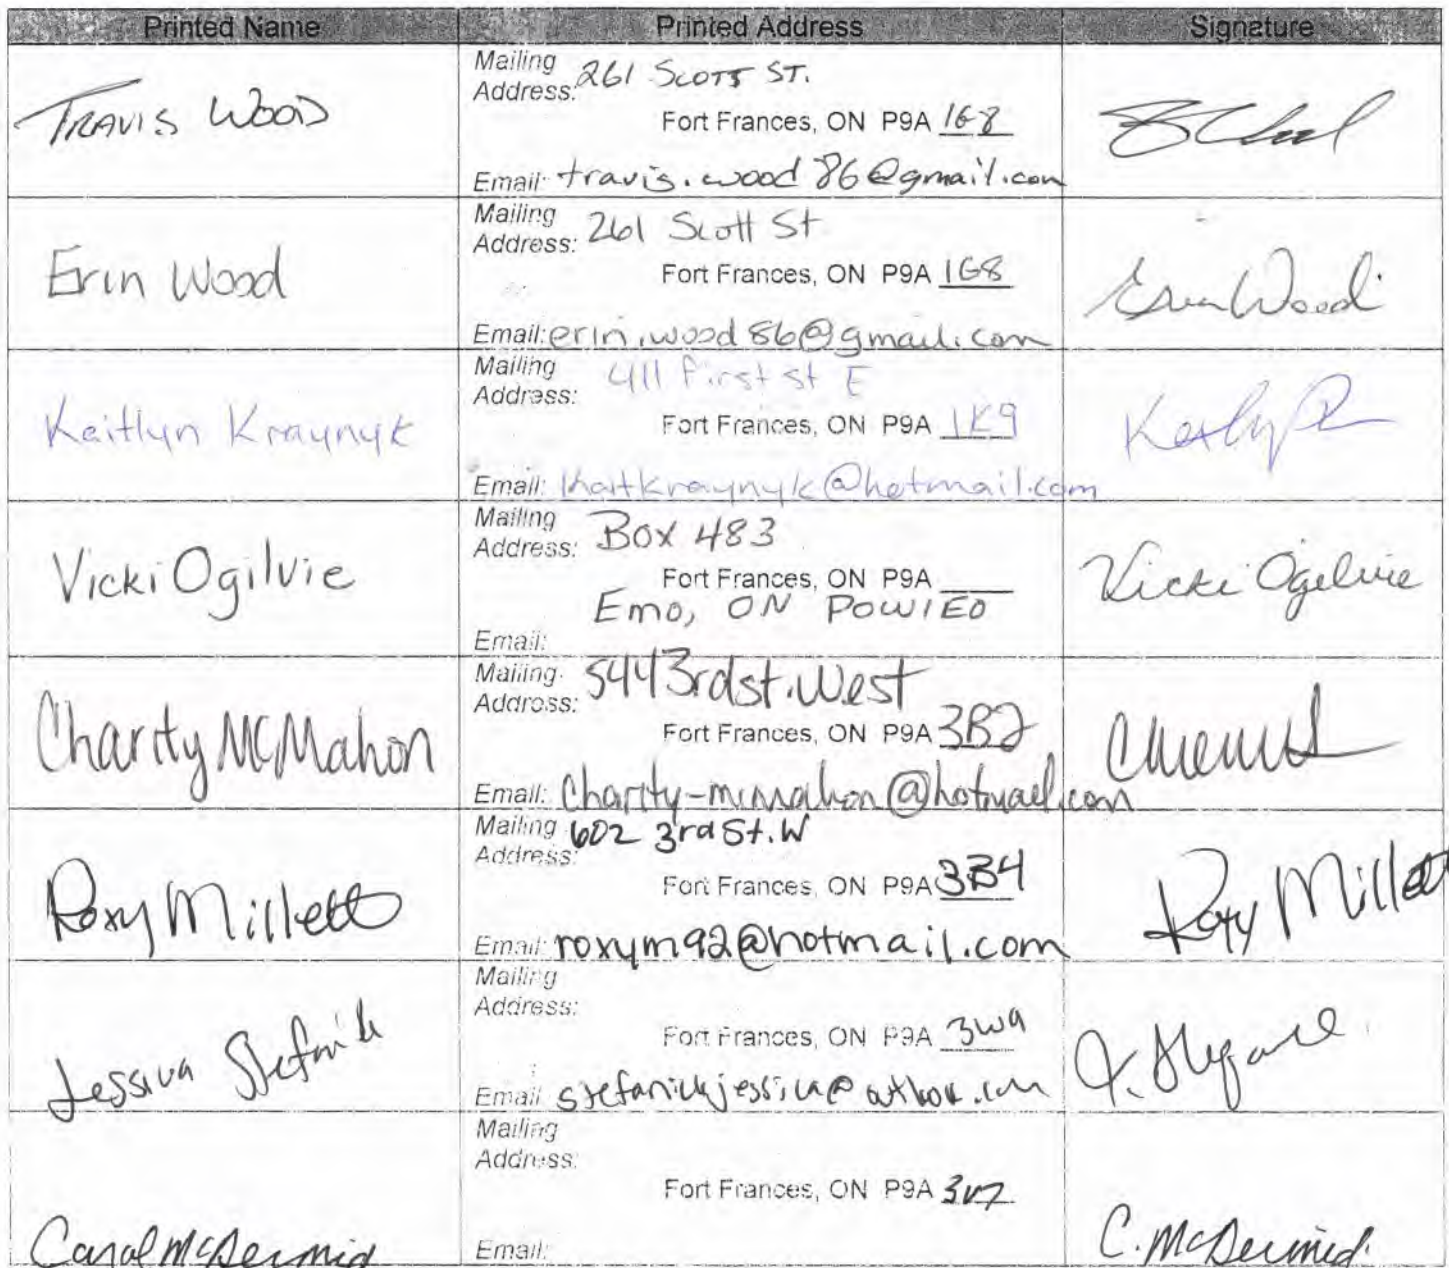 Printed Name Printed Address Signature
Travis Wood
Mailing Address: 261 Scott St.
Fort Frances, ON P9A 1G8
Email: travis.wood86@gmail.com
Erin Wood
Mailing Address: 261 Scott St
Fort Frances, ON P9A 1G8
Email: erin.wood86@gmail.com
Erin Wood
Kaitlyn Kraynyk
Mailing Address: 411 First St E
Fort Frances, ON P9A 1K9
Email: kaitkraynyk@hotmail.com
Vicki Ogilvie
Mailing Address: Box 483
Fort Frances, ON P9A
Emo, ON P0W1E0
Email:
Vicki Ogilvie
Charity McMahon
Mailing Address: 544 3rd st. West
Fort Frances, ON P9A 3B2
Email: charity-mcmahon@hotmail.com
Roxy Millett
Mailing Address: 602 3rd St. W
Fort Frances, ON P9A 3B4
Email: roxym92@hotmail.com
Roxy Millett
Jessica Stefanick
Mailing Address:
Fort Frances, ON P9A 3W9
Email: stefanickjessica@outlook.com
Carol McDermid
Mailing Address:
Fort Frances, ON P9A
Email:
C. McDermid